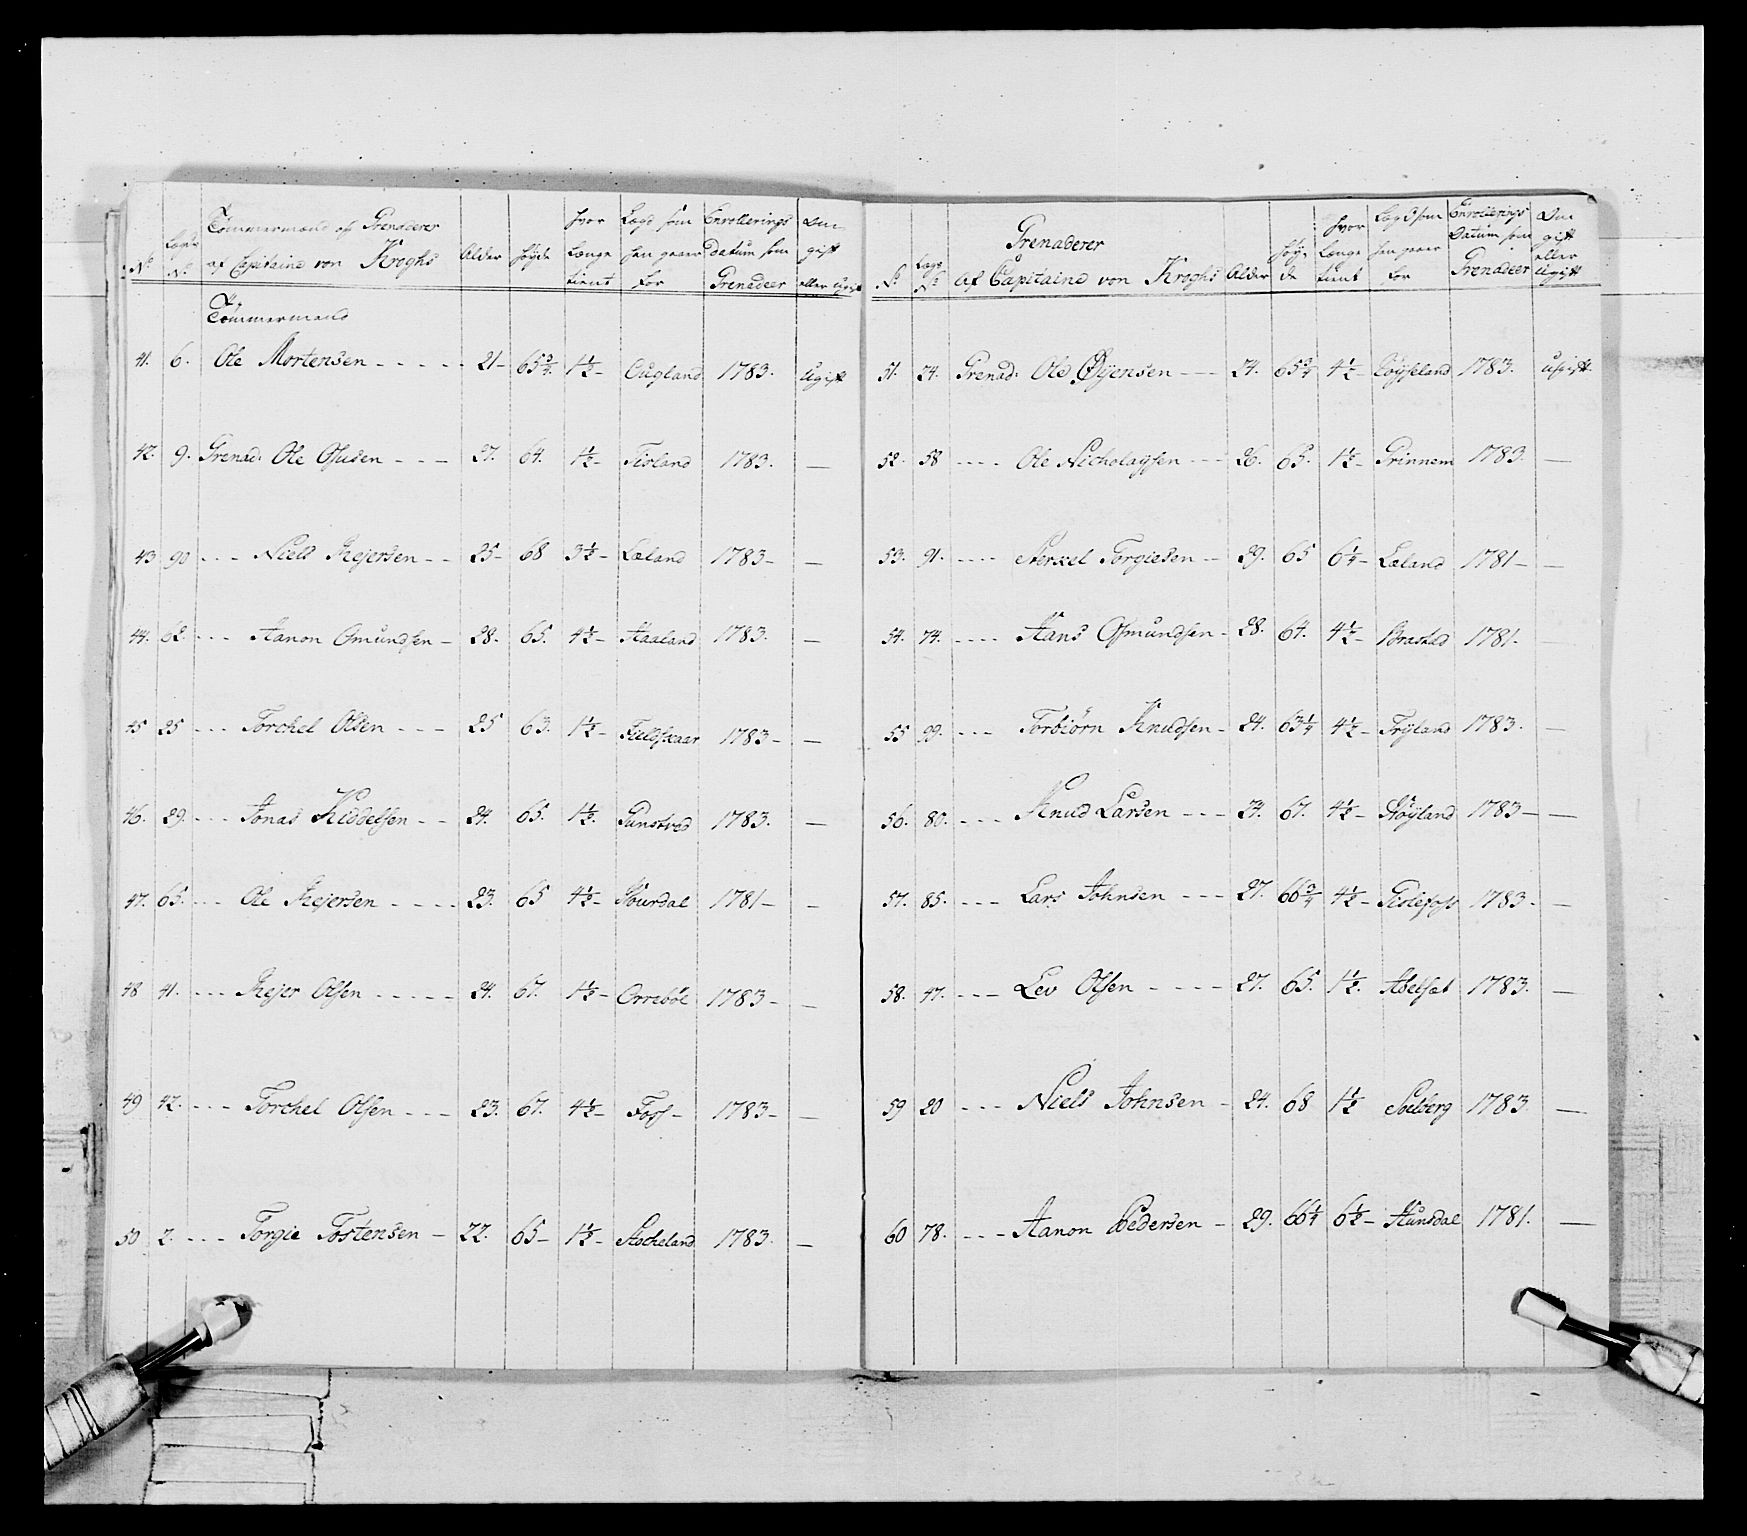 No
Lægs No
Tømmermænd af Grenaderer
af Capitaine von Kroghs
Alder
høyde
hvor længe tient
Lægd som han gaaer for
Enrollerings Datum som Grenadeer
Om gift eller ugift
Tømmermænd
41. 6. Ole Mortensen - - - - - 21- 65 3/4. 1 1/2- Ougland 1783. Ugift
42. 9. Grenad: Ole Osuldsen - - - 27. 64. 1 1/2- Tisland 1783. —
43 90 - - - Niels Rejersen - - 25- 68 3 1/2- Læland 1783- —
44. 62. - - - Aanon Osmundsen - 28. 65. 4 1/2- Haaland 1783. —
45 25 - - - Torchel Olsen - - - 25 63. 1 1/2- Fieldskaar 1783- —
46. 29. - - - Jonas Kiddelsen - - 24. 65. 1 1/2. Gunstved 1783. —
47. 65. - - - Ole Rejersen - - - - 23. 65 4 1/2- Schourdal 1781- —
48 41. - - - Rejer Olsen - - - - - 24. 67. 1 1/2- Orrebøe 1783- —
49 42. - - - Torchel Olsen - - - 23. 67. 4 1/2- Foss- 1783- —
50 2. - - - Torgie Tostensen - 22. 65- 1 1/2- Stocheland 1783. —
No
Lægs No
Grenaderer
af Capitaine von Kroghs
Alder
høyde
hvor længe tient
Lægd som han gaaer for
Enrollerings Datum som Grenadeer
Om gift eller Ugift
51. 24. Grenad: Ole Øÿensen - - - 24. 65 3/4 4 1/2- Røÿseland 1783. ugift.
52. 58 - - - - Ole Nicholaysen - - - 26. 65. 1 1/2- Grinnem 1783. —
53. 91. - - - - Sterkel Torgiesen - - 29. 65 6 1/4- Læland 1781- —
54. 74. - - - - Hans Osmundsen - 28. 64. 4 1/2- Brastad 1781. —
55 99. - - - Torbiørn Knudsen - 24. 63 1/4 4 1/2- Frÿland 1783. —
56. 80. - - - Knud Larsen - - - 24. 67. 4 1/2- Høÿland 1783- —
57. 85. - - - Lars Johnsen - - - 27. 66 3/4 4 1/2- Gislefoss 1783- —
58. 47. - - - Lev Olsen - - - - 27. 65. 1 1/2. Abelset 1783. —
59 20 - - - Niels Johnsen - 24. 68 1 1/2 Solberg 1783. —
60 78. - - - Aanon Pedersen - 29. 66 1/4 6 1/2- Hunsdal 1781. —